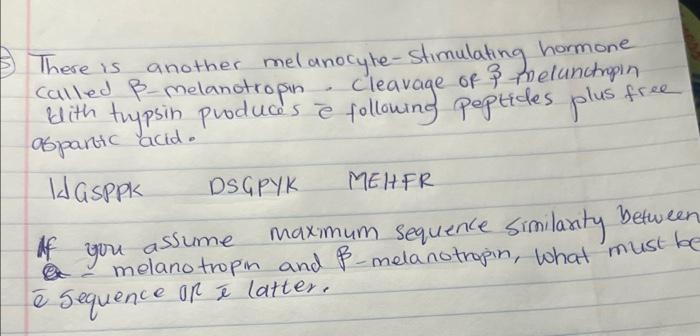 5) There is another melanocyte-stimulating hormone
called β-melanotropin. Cleavage of β-melanotropin
with trypsin produces ē following peptides plus free
aspartic acid.
WGSPPK DSGPYK MEHFR
If you assume maximum sequence similarity between
α-melanotropin and β-melanotropin, what must be
ē sequence of ē latter.